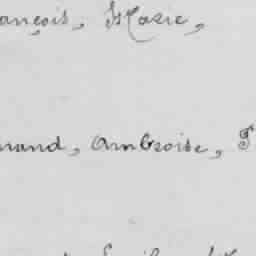 ançois, Marie,
nand, Ambroise,